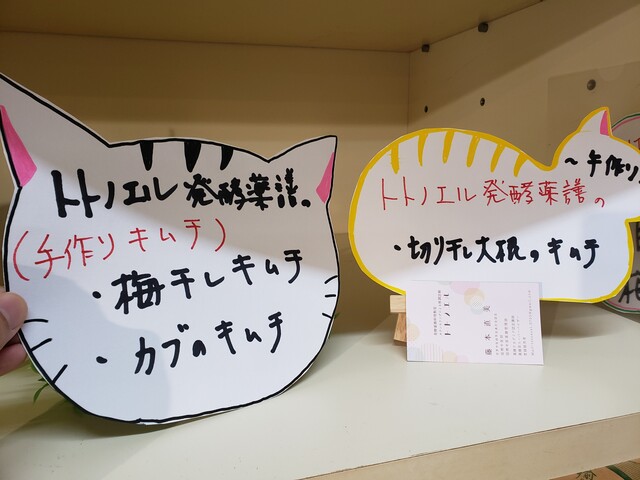 トトノエル発酵薬膳。
(手作りキムチ)
・梅干しキムチ
・カブのキムチ
～手作り
トトノエル発酵薬膳の
・切り干し大根のキムチ
トトノエル
藤本直美